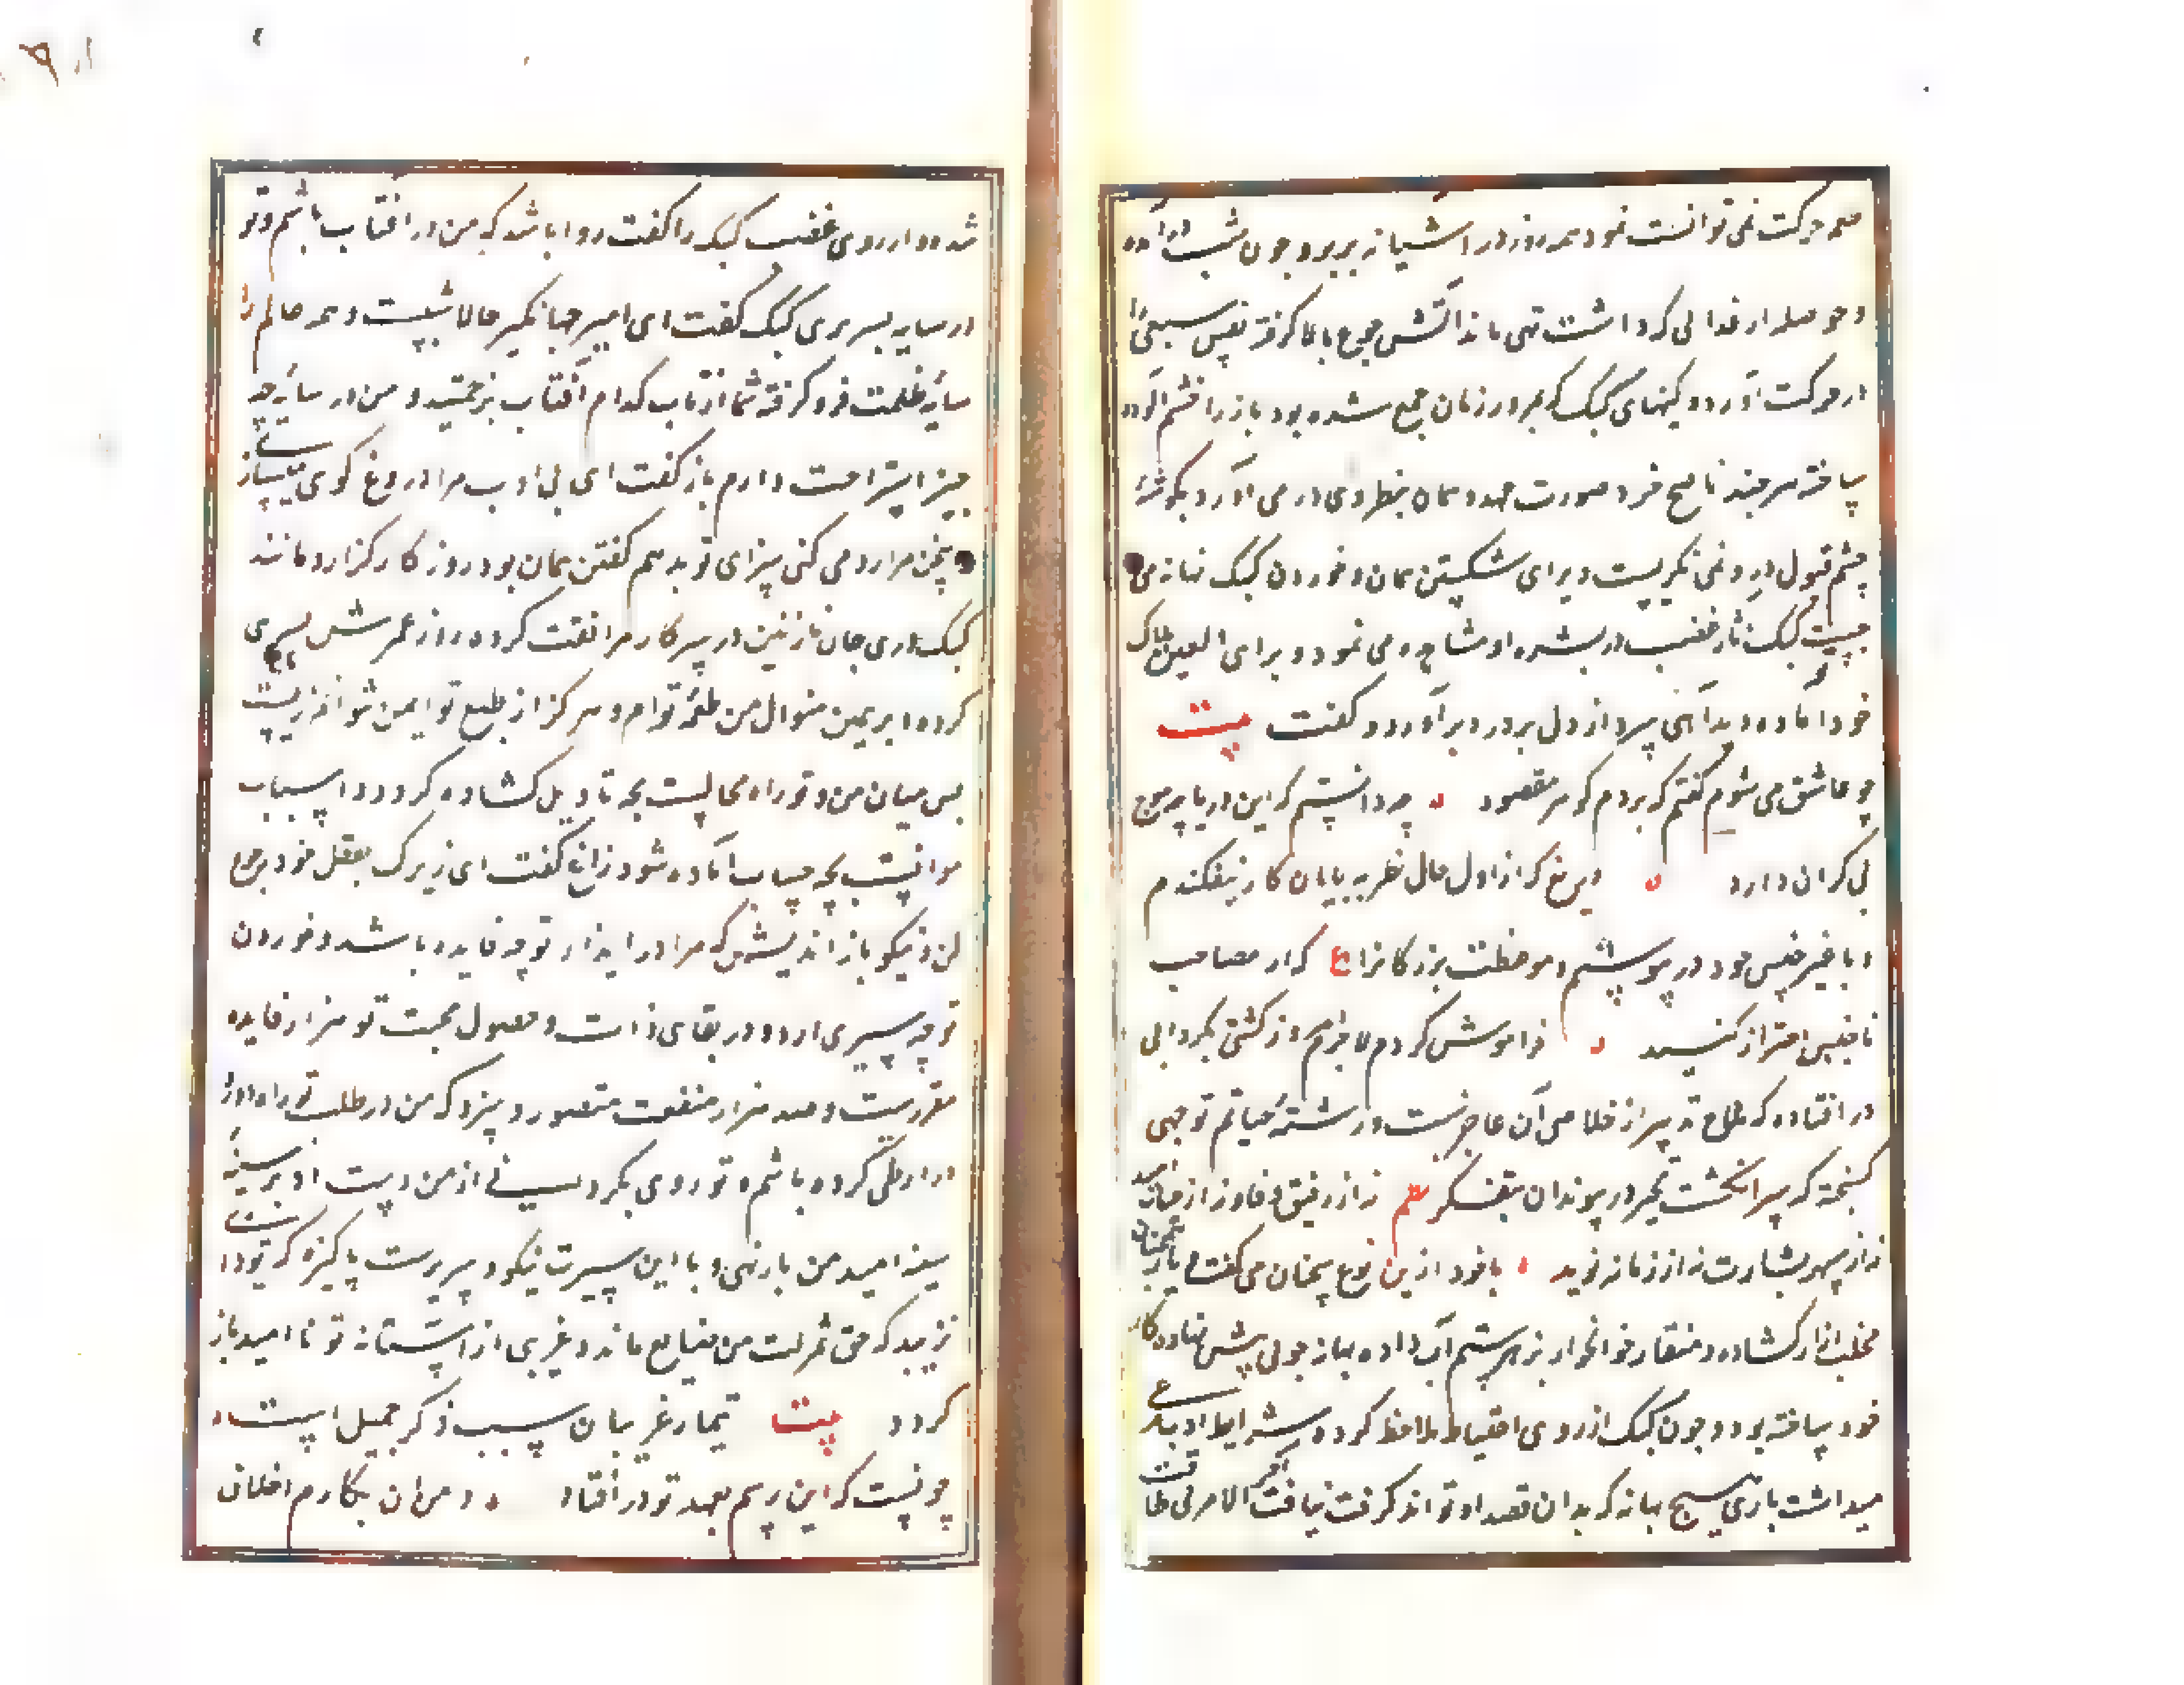 حرکت نمی توانست نمود همه روز در آشیانه بربرد چون شب درآمد
و حوصله از غذائی که داشت تهی ماند آتش جوع بالا گرفته نفس سبعی را
در حرکت آورد و کینهای کبک که بمرور زمان جمع شده بود باز را خشم آلود
ساخته هرچند ناصح خرد صورت عهد و پیمان بنظر وی در می آورد بگوشهٔ
چشم قبول در وی نمی نگریست و برای شکستن پیمان و خوردن کبک بهانه می
جست کبک آثار غضب در بشره او مشاهده می نمود و برای العین هلاک
خود آماده دید آهی سرد از دل پردرد برآورد و گفت بیت
چو عاشق می شوم گفتم که بردم گوهر مقصود چه دانستم که این دریا چه موج
بی کران دارد دریغ که از اول حال نظر به پایان کار نیفکندم
و با غیر جنس خود در پیوستم و موعظت بزرگانرا ع که از مصاحب
ناجنس احتراز کنید فراموش کردم لاجرم امروز کشتی بگردابی
در افتاده که ملاح تدبیر از خلاصی آن عاجزست و رشتهٔ حیاتم توجهی
گسیخته که سر انگشت تحیر در پیوندان متفکر نه از رفیق وفا و نه از
نه از سپهر بشارت نه از زمانه نوید با خود ازین نوع سخنان می گفت باز همچنان
مخلب آزار گشاده و منقار خونخوار بزهر ستم آب داده بهانه جوئی پیش نهاد کار
خود ساخته بود و چون کبک از روی احتیاط ملاحظه کرده شرایط ادب برعایت
میداشت باز هیچ بهانه که بدان قصد او تواند کرفت نیافت آخر الامر بی طاقت
شده و از روی غضب کبک را گفت روا باشد که من در آفتاب باشم و تو
در سایه بسر بری کبک گفت ای امیر جهانگیر حالا شبست و همه عالم را
سایهٔ ظلمت فرو گرفته شما از تاب کدام آفتاب بزحمتید و من در سایهٔ چه
چیز استراحت دارم باز گفت ای بی ادب مرا دروغ گوی میسازی
سخن مرا رد می کنی سزای تو بدهم گفتن همان بود روز کار گزارد مانند
کبک دری جان نازنین در سر کار مرافقت کرده و از عمرش بسی
کرده ابر همین منوال من طعمه توام و هرگز از طمع تو ایمن نتوانم زیست
پس میان من و تو راه مجالست بچه تاویل گشاده گردد و اسباب
موانست بچه حساب آماده شود زاغ گفت ای زیرک بعقل خود رجوع
کن و نیکو باز اندیش که مرا در ایذاء تو چه فایده باشد و خوردن
تو چه سیری آرد و در بقای ذات و حصول محبت تو هزار فایده
مقررست و صد هزار منفعت متصور و سزد که من در طلب تو راه دور
دراز طی کرده باشم و تو روی بگردانی از من و دست رد بر سینهٔ
سینهٔ امید من بازنهی و با این سیرت نیکو و سریرت پاکیزه که تو داری
نزیبد که حق غربت من ضایع ماند و غریبی از آستانه تو ناامید باز
گردد بیت تیمار غریبان سبب ذکر جمیل است
چونست که این رسم بعهد تو در افتاد و من ان مکارم اخلاق